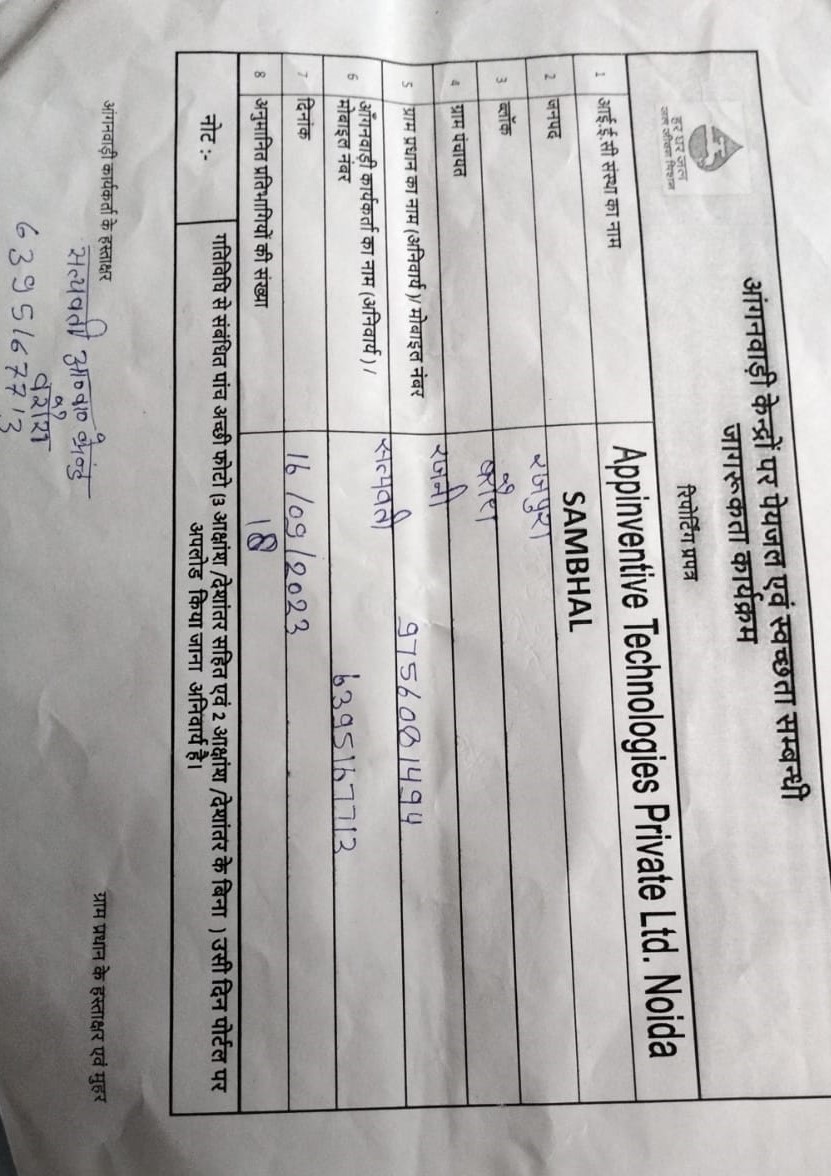 हर घर जल
जल जीवन मिशन
आंगनवाड़ी केन्द्रों पर पेयजल एवं स्वच्छता सम्बन्धी
जागरूकता कार्यक्रम
रिपोर्टिंग प्रपत्र
1 आई.ई.सी संस्था का नाम Appinventive Technologies Private Ltd. Noida
2 जनपद SAMBHAL
3 ब्लॉक रजपुरा
4 ग्राम पंचायत
5 ग्राम प्रधान का नाम (अनिवार्य )/ मोबाइल नंबर रजनी 9756081494
6 आँगनवाड़ी कार्यकर्ता का नाम (अनिवार्य ) / सत्यवती
मोबाइल नंबर 6395167713
7 दिनांक 16/09/2023
8 अनुमानित प्रतिभागियों की संख्या 18
नोट :- गतिविधि से संबंधित पांच अच्छी फोटो (3 आक्षांश /देशांतर सहित एवं 2 आक्षांश /देशांतर के बिना ) उसी दिन पोर्टल पर
अपलोड किया जाना अनिवार्य है।
आंगनवाड़ी कार्यकर्ता के हस्ताक्षर ग्राम प्रधान के हस्ताक्षर एवं मुहर
सत्यवती
6395167713